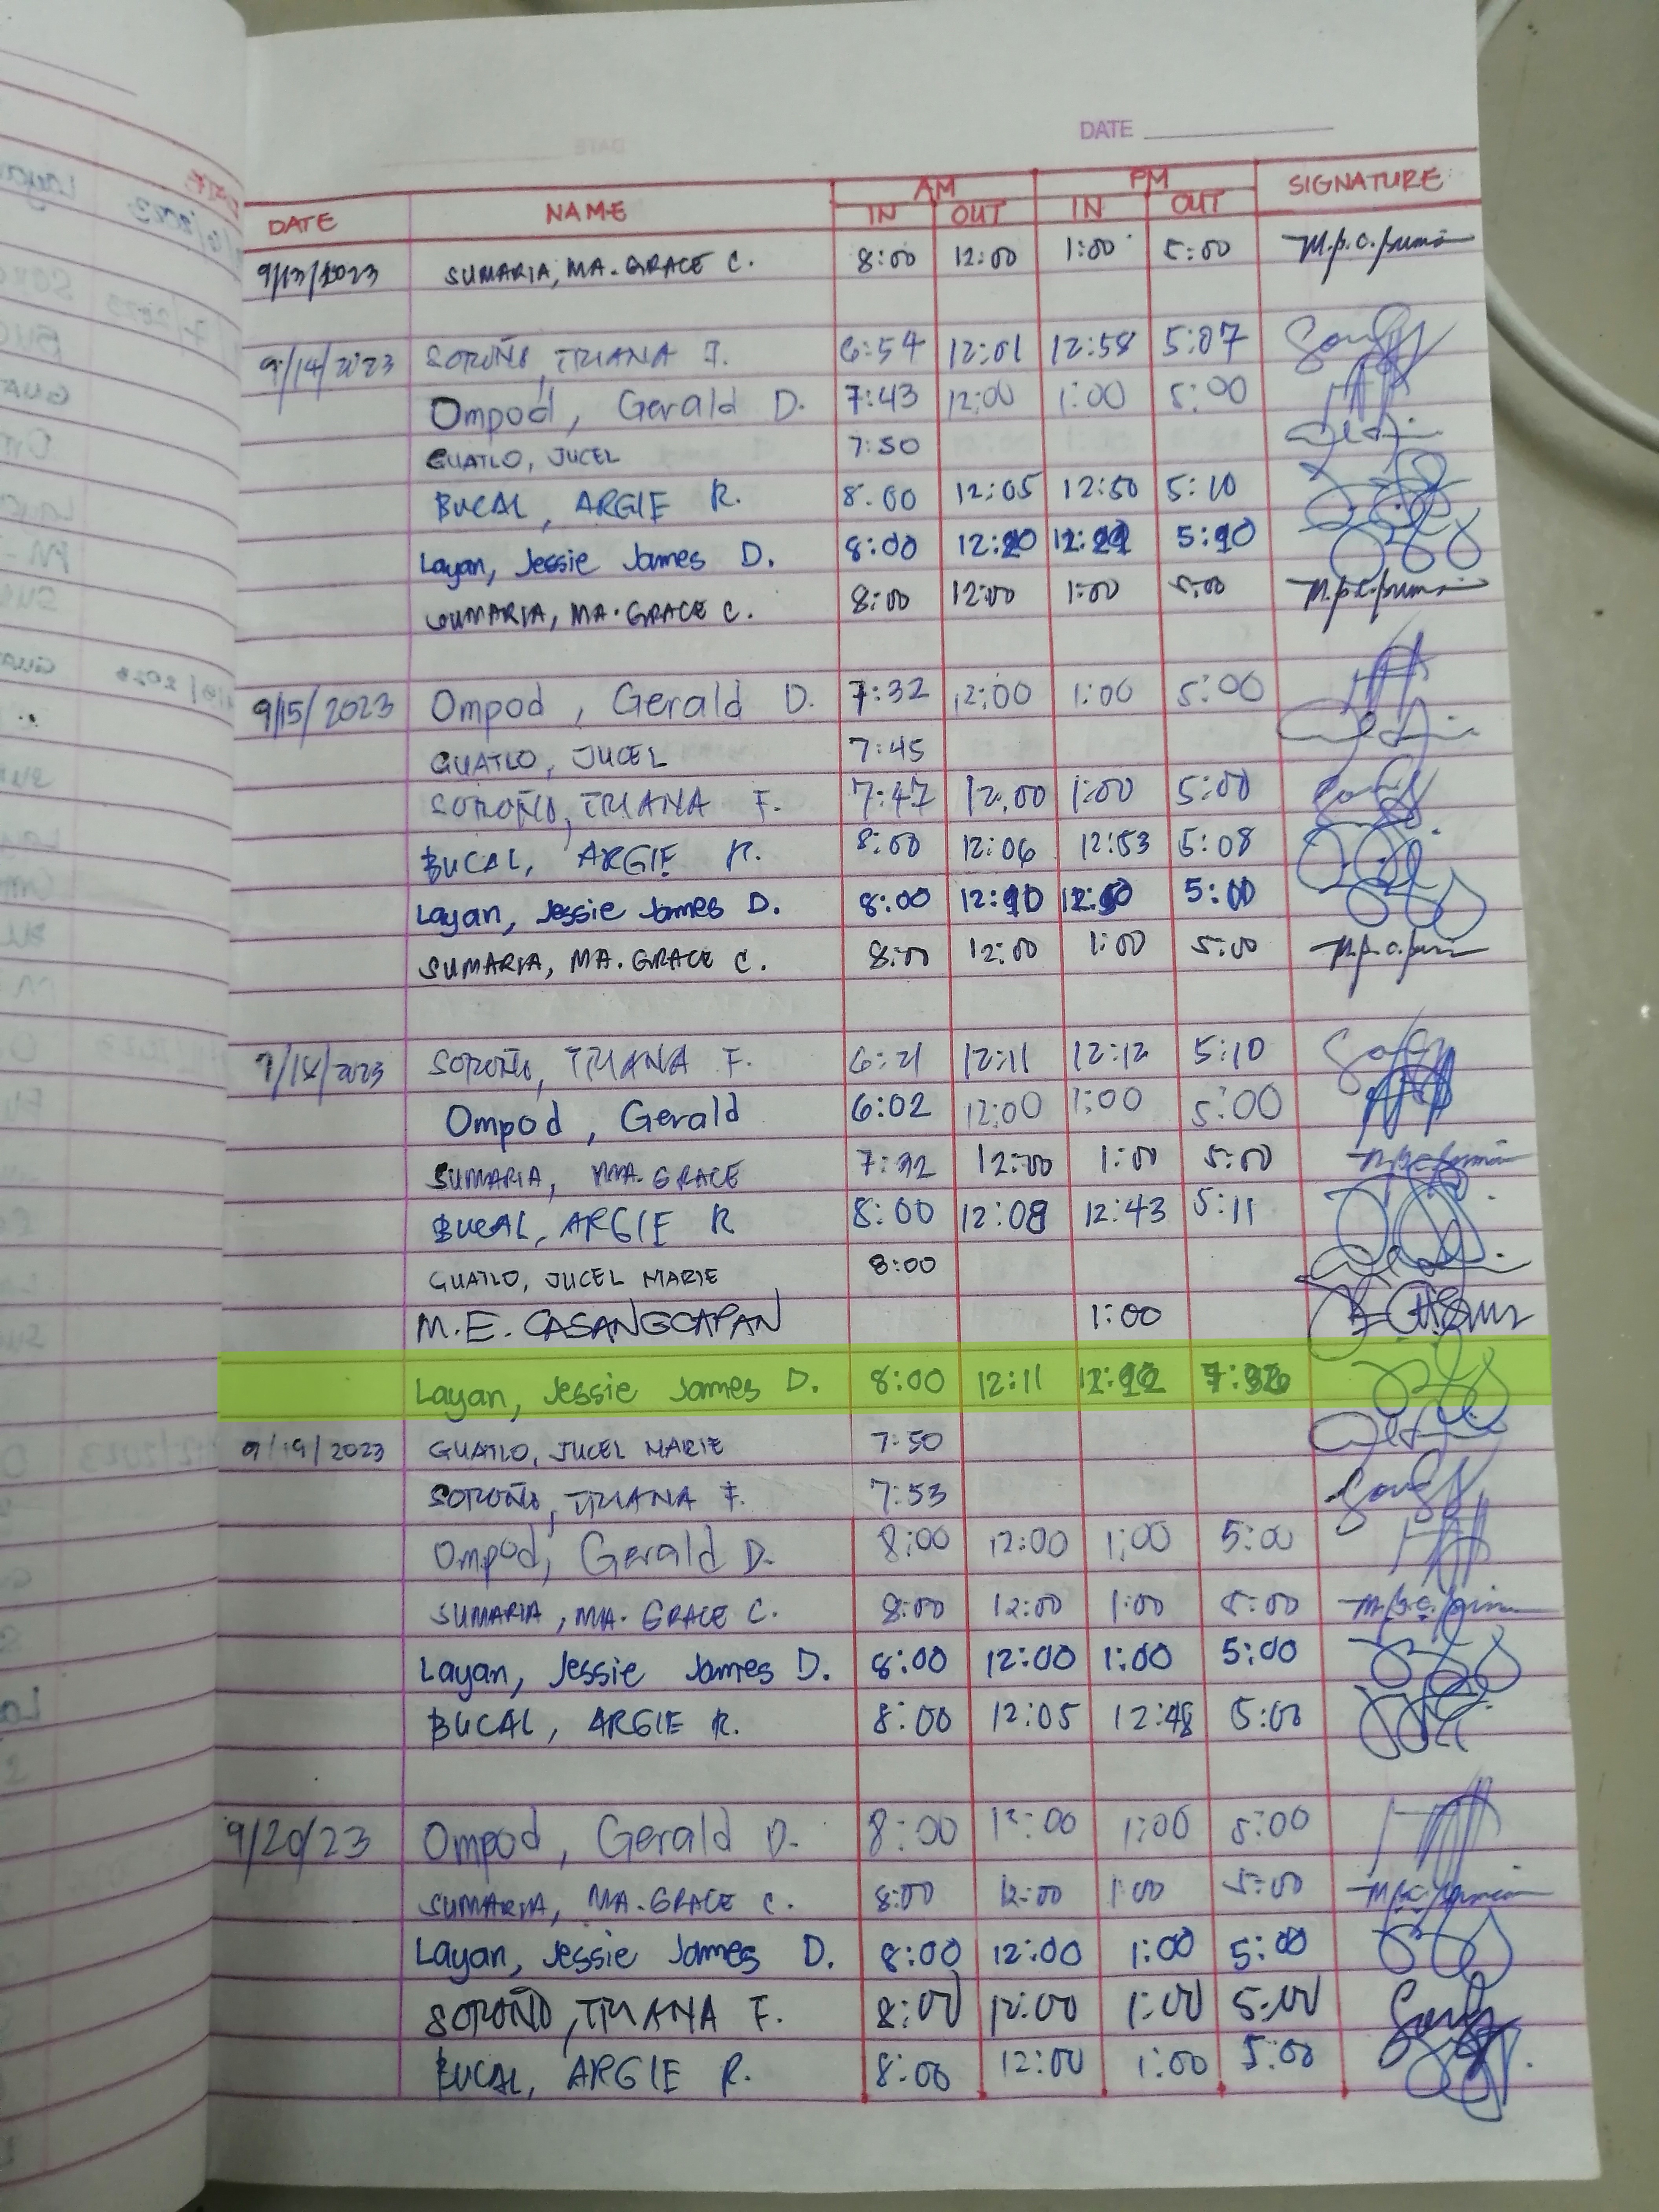 DATE
AM PM
DATE NAME IN OUT IN OUT SIGNATURE
9/13/2023 SUMARIA, MA. GRACE C. 8:00 12:00 1:00 5:00
9/14/2023 SOROÑO, TRIANA F. 6:54 12:01 12:58 5:07
Ompod, Gerald D. 7:43 12:00 1:00 5:00
GUATLO, JUCEL 7:50
BUCAL, ARGIE R. 8:00 12:05 12:50 5:10
Layan, Jessie James D. 8:00 5:10
SUMARIA, MA. GRACE C. 8:00 12:00 1:00 5:00
9/15/2023 Ompod, Gerald D. 7:32 12:00 1:00 5:00
GUATLO, JUCEL 7:45
SOROÑO, TRIANA F. 7:47 12:00 1:00 5:00
BUCAL, ARGIE R. 8:00 12:06 12:53 5:08
Layan, Jessie James D. 8:00 12:10 5:00
SUMARIA, MA. GRACE C. 8:00 12:00 1:00 5:00
9/18/2023 SOROÑO, TRIANA F. 6:21 12:11 12:12 5:10
Ompod, Gerald 6:02 12:00 1:00 5:00
SUMARIA, MA. GRACE 7:32 12:00 1:00 5:00
BUCAL, ARGIE R 8:00 12:08 12:43 5:11
GUATLO, JUCEL MARIE 8:00
M.E. CASANGCAPAN 1:00
Layan, Jessie James D. 8:00 12:11
9/19/2023 GUATLO, JUCEL MARIE 7:50
SOROÑO, TRIANA F. 7:53
Ompod, Gerald D. 8:00 12:00 1:00 5:00
SUMARIA, MA. GRACE C. 8:00 12:00 1:00 5:00
Layan, Jessie James D. 8:00 12:00 1:00 5:00
BUCAL, ARGIE R. 8:00 12:05 12:48 5:00
9/20/23 Ompod, Gerald D. 8:00 12:00 1:00 5:00
SUMARIA, MA. GRACE C. 8:00 12:00 1:00 5:00
Layan, Jessie James D. 8:00 12:00 1:00 5:00
SOROÑO, TRIANA F. 8:00 12:00 1:00 5:00
BUCAL, ARGIE R. 8:00 12:00 1:00 5:00